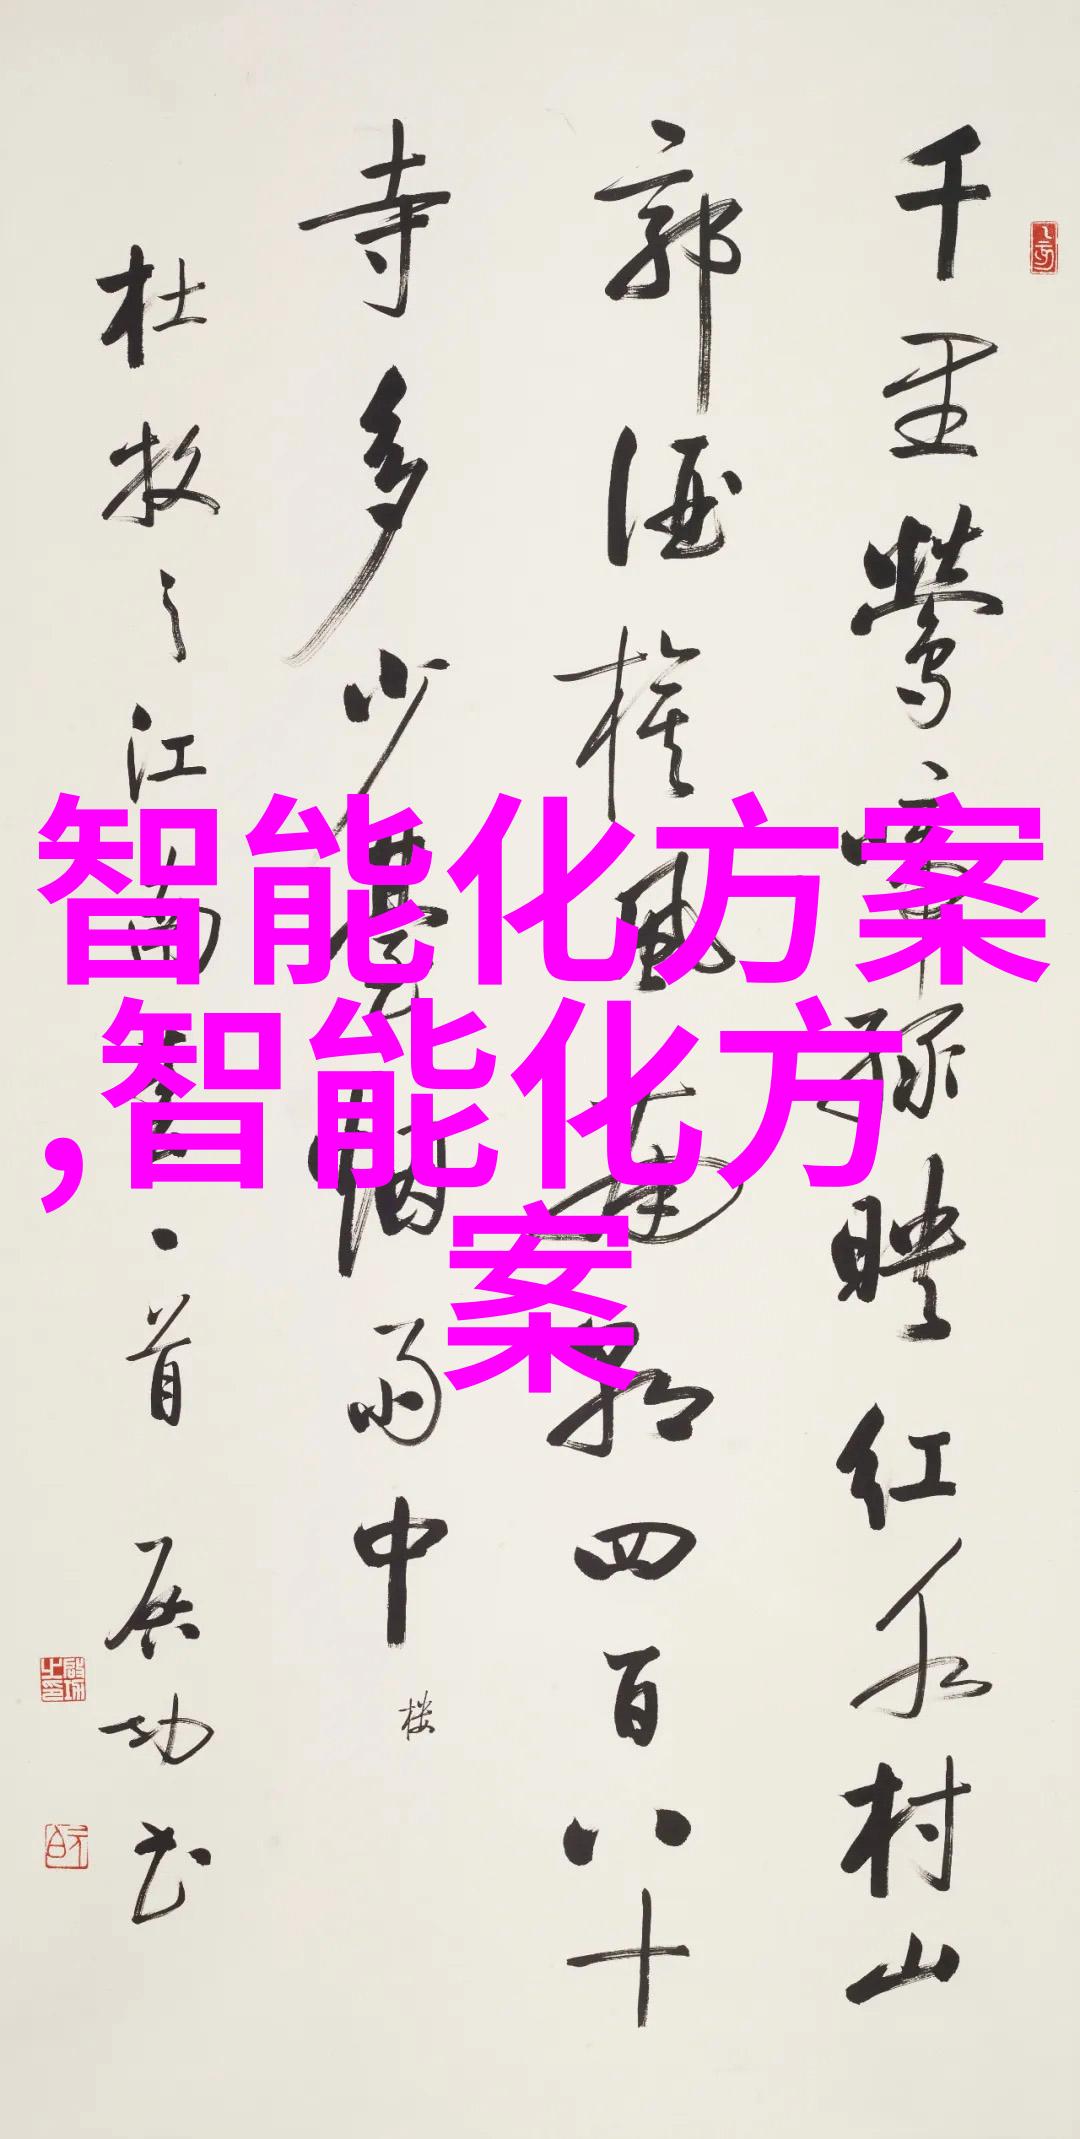 千里莺啼绿映红水村山
郭酒旗风南朝四百八十
寺多少台烟雨中
楼
杜牧之江南春一首 启功书
智能化方案
,智能化方
案